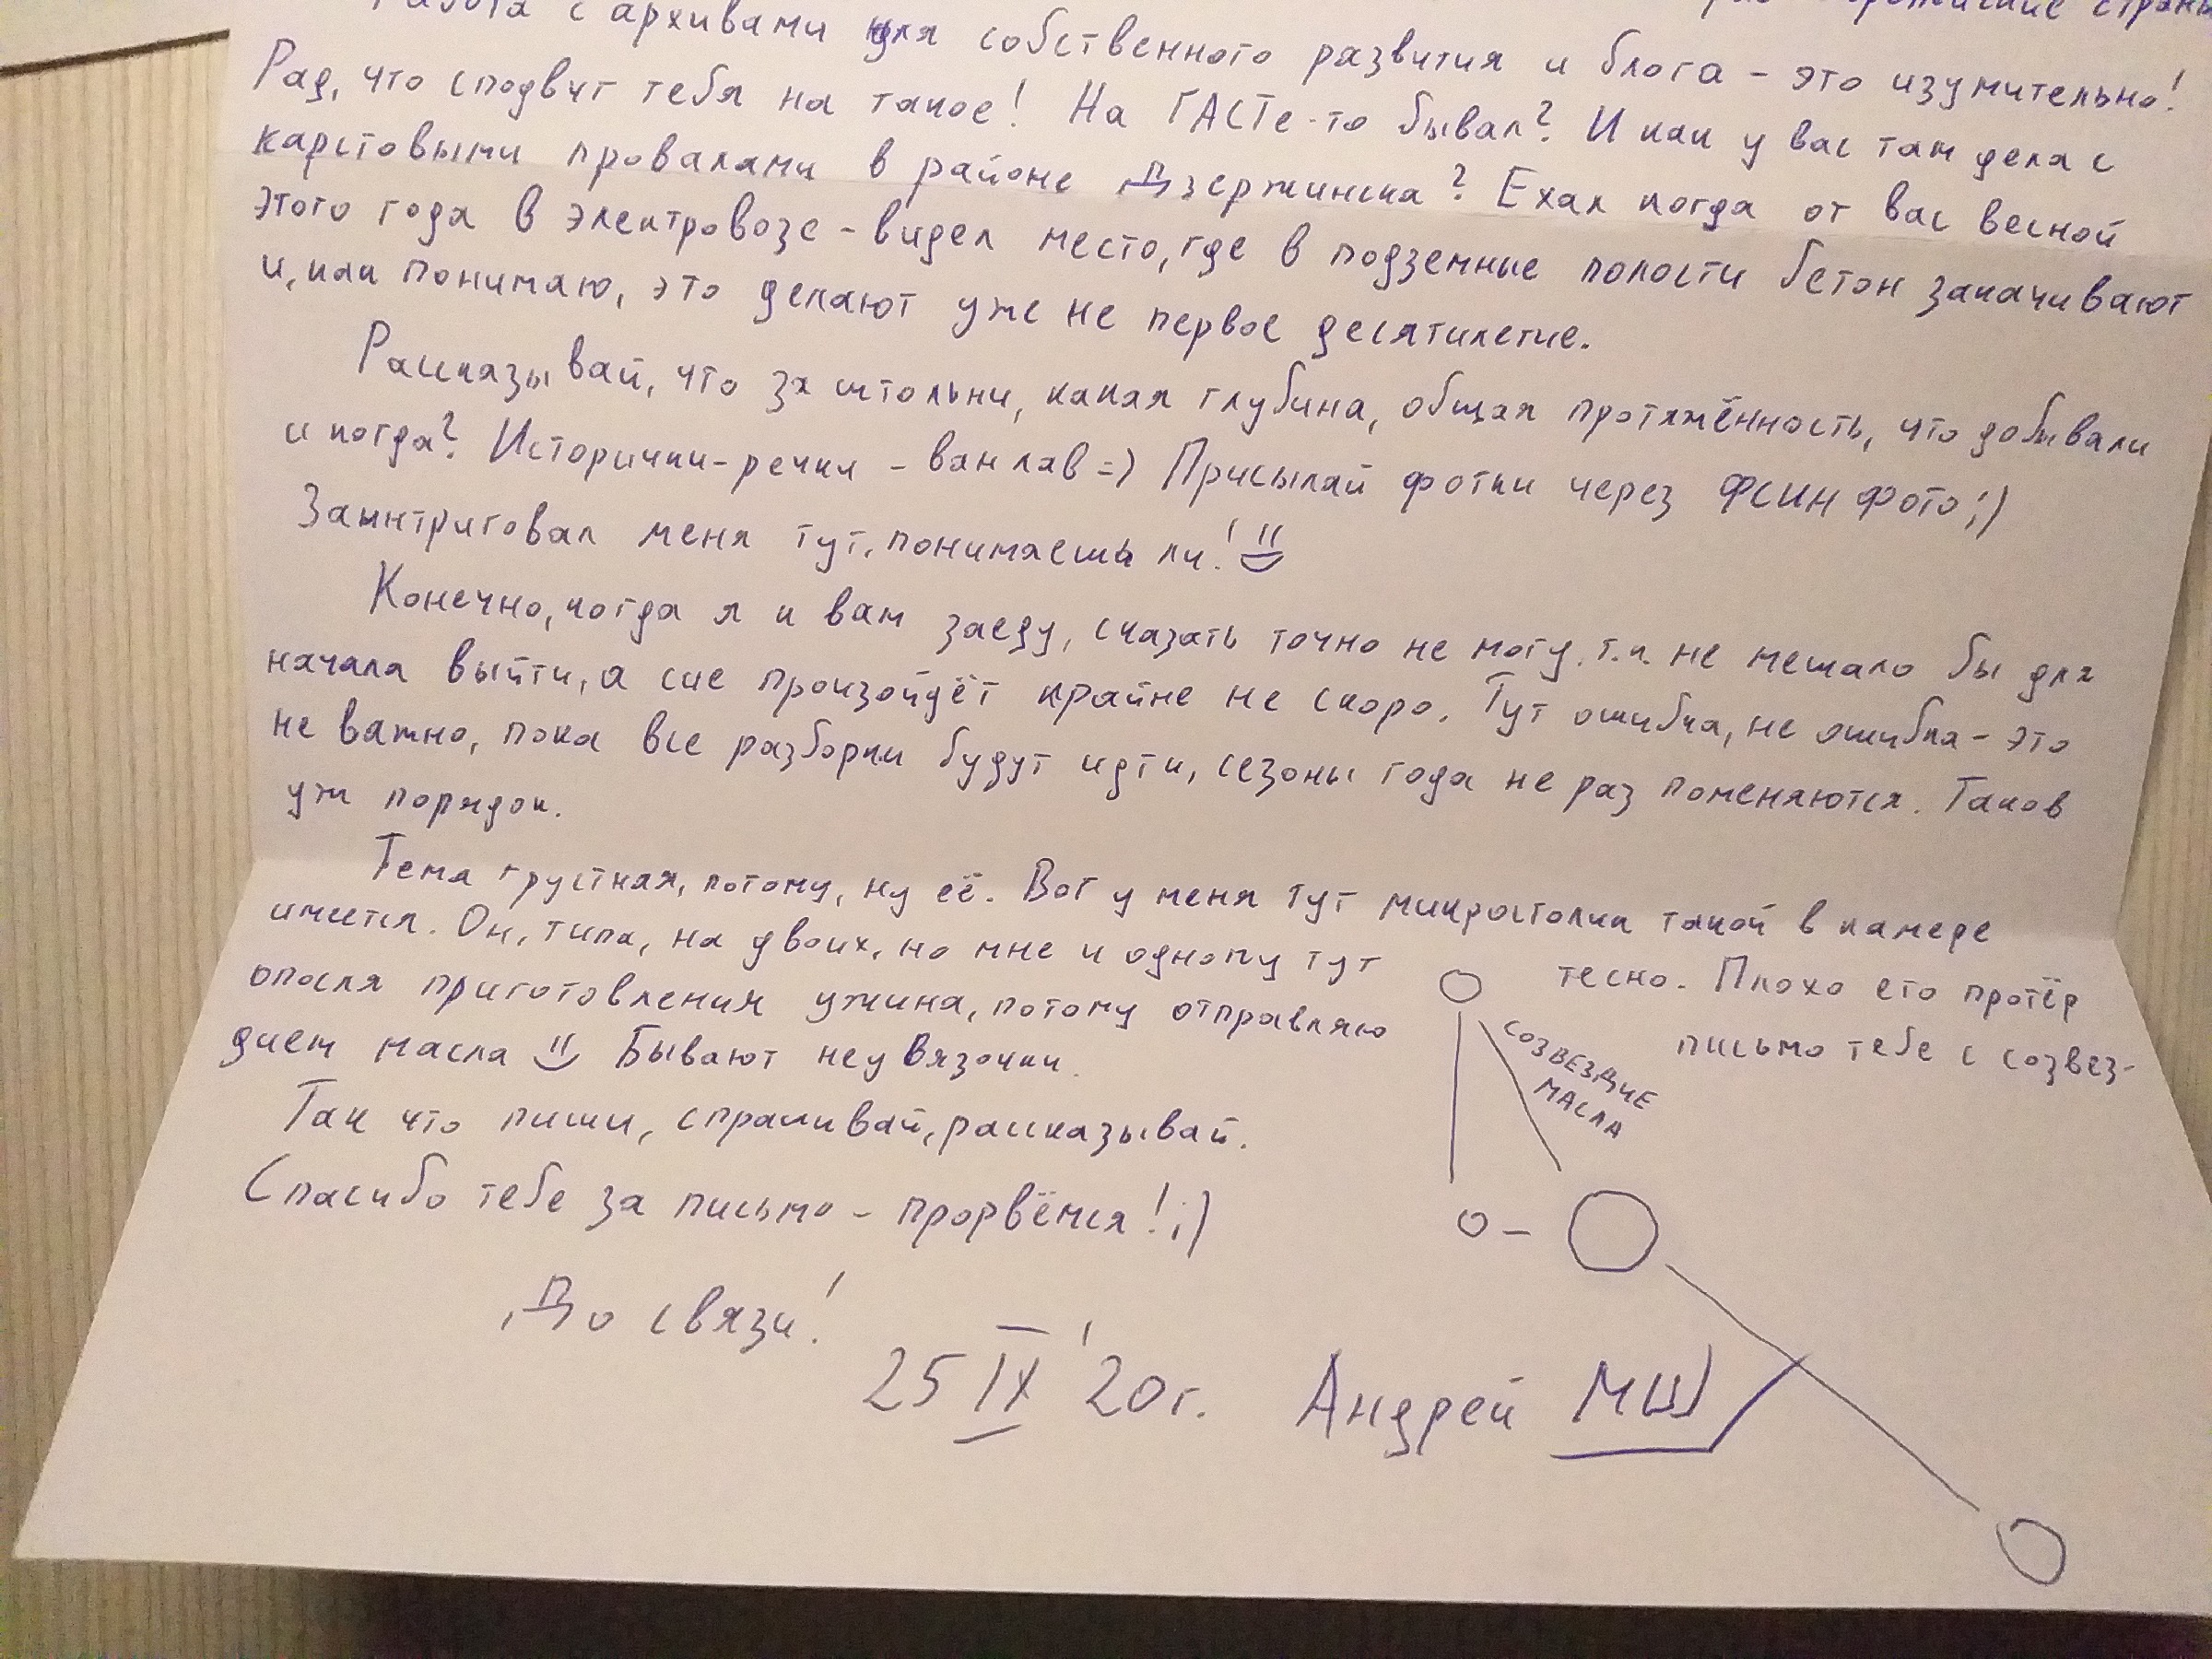 Работа с архивами для собственного развития и блога - это изумительно!
Рад, что сподвиг тебя на такое! На ГАСТе-то бывал? И как у вас там дела с
карстовыми провалами в районе Дзержинска? Ехал когда от вас весной
этого года в электровозе - видел место, где в подземные полости бетон закачивают
и, как понимаю, это делают уже не первое десятилетие.
Рассказывай, что за штольни, какая глубина, общая протяжённость, что добывали
и когда? Исторички-речки - ван лав =) Присылай фотки через ФСИН фото ;)
Заинтриговал меня тут, понимаешь ли!
Конечно, когда я к вам заеду, сказать точно не могу, т.к. не мешало бы для
начала выйти, а сие произойдёт крайне не скоро. Тут ошибка, не ошибка - это
не важно, пока все разборки будут идти, сезоны года не раз поменяются. Таков
уж порядок.
Тема грустная, потому, ну её. Вот у меня тут микростолик такой в камере
имеется. Он, типа, на двоих, но мне и одному тут тесно. Плохо его протёр
опосля приготовления ужина, потому отправляю письмо тебе с созвез-
дием масла Бывают неувязочки.
СОЗВЕЗДИЕ
МАСЛА
Так что пиши, спрашивай, рассказывай.
Спасибо тебе за письмо - прорвёмся! ;)
До связи!
25 IX '20г. Андрей МШ